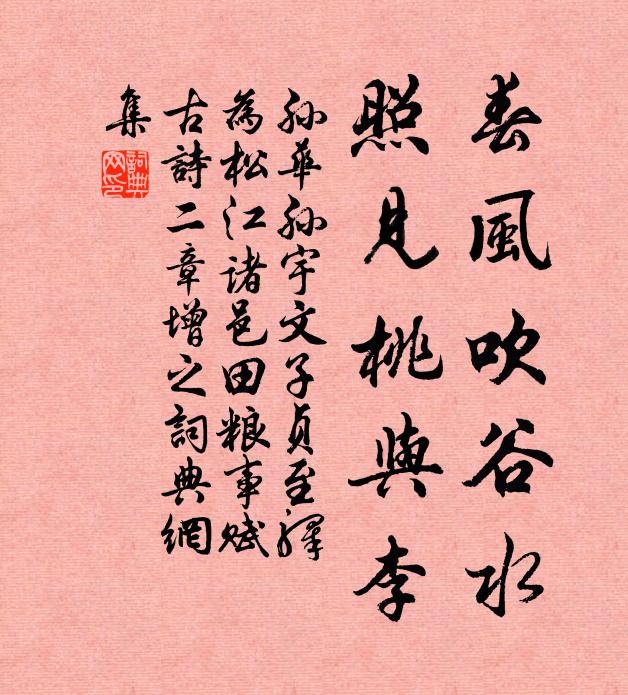 春風吹谷水
照見桃與李
孫華孫宇文子貞至驛
為松江諸邑田粮事賦
古詩二章增之詞典網
集
詞典網印